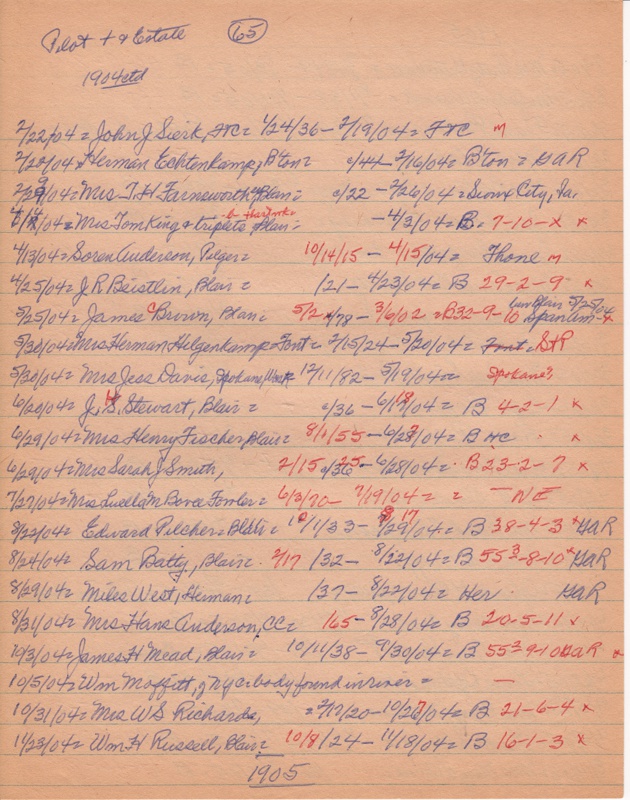 Pilot + & Estate 65
1904ctd
2/22/04= John J Sierk, FC= 1/24/36- 2/19/04= FC m
Herman Echtenkamp, B'ton= c/44- 2/16/04= B'ton = GAR
2/29/04= Mrs T H Farnsworth, Blair= c/22- 2/26/04= Sioux City, Ia.
Mrs Tom King & triplets, Blair= -4/3/04= B= 7-10-x x
4/13/04= Soren Anderson, Pilger= 10/14/15- 4/15/04= Thone m
4/25/04= J R Beistlin, Blair= /21- 4/23/04= B 29-2-9 x
5/25/04= James C Brown, Blair= 5/2 4/78- 3/6/02=B32-9-10 5/25/04 Span Am-x
5/30/04= Mrs Herman Hilgenkamp= Font= 2/15/24- 5/20/04= Font= StP
5/30/04= Mrs Jess Davis, Spokane, Wash= 12/11/82- 5/19/04= Spokane,
6/20/04= J. H. Stewart, Blair= c/36- 6/18/04= B 4-2-1 x
6/29/04= Mrs Henry Fischer, Blair= 8/1/55- 6/27/04= B NC x
6/29/04= Mrs Sarah J Smith, 2/15 25- 6/28/04= B23-2-7 x
7/27/04= Mrs Luella M Bovee Fowler= 6/3/70- 7/19/04= = - NE
8/22/04= Edward Pilcher= Blair= 10/1/33- 8/17/04= B 38-4-3 x GAR
8/24/04= Sam Batty, Blair= 2/17 /32- 8/22/04= B 55³-8-10 x GAR
8/29/04= Miles West, Herman= /37- 8/22/04= Her GAR
8/31/04= Mrs Hans Anderson, CC= 165- 8/28/04= B 20-5-11 x
10/3/04= James H Mead, Blair= 10/11/38- 9/30/04= B 55³9-10 GAR x
10/5/04= Wm Moffitt, of NYC= body found in river= -
10/31/04= Mrs W S Richards, = 2/17/20- 10/27/04= B 21-6-4 x
11/23/04= Wm H Russell, Blair= 10/8/24- 11/18/04= B 16-1-3 x
1905